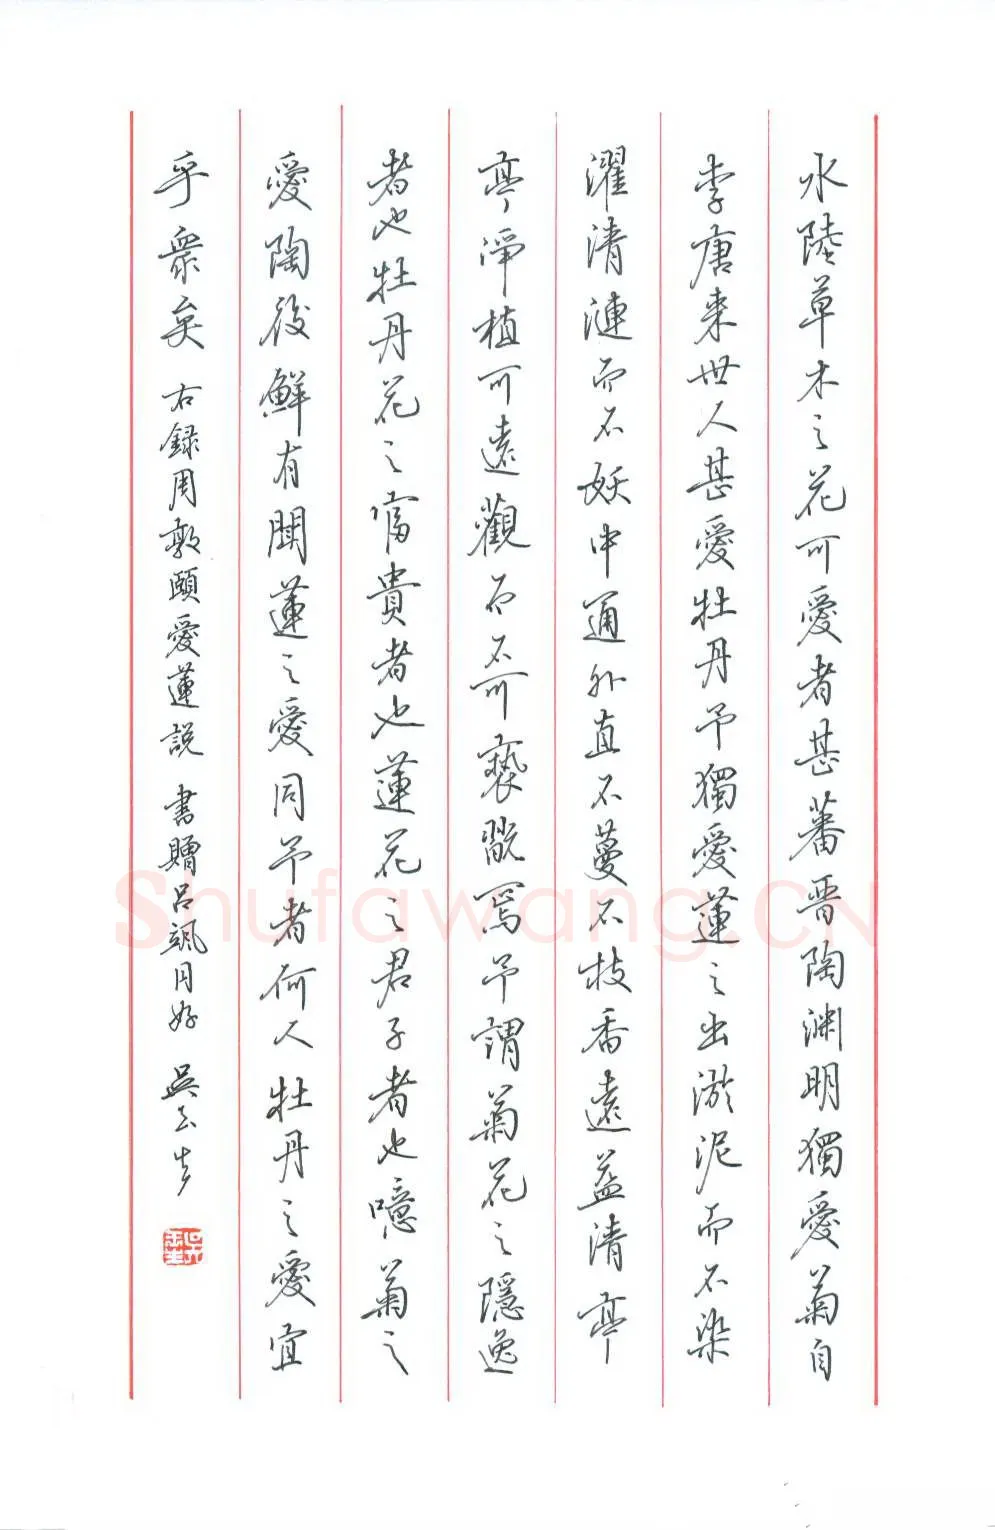 水陸草木之花可愛者甚蕃晋陶渊明獨愛菊自
李唐来世人甚愛牡丹予獨愛蓮之出淤泥而不染
濯清漣而不妖中通外直不蔓不枝香遠益清亭
亭淨植可遠觀而不可褻翫焉予謂菊花之隱逸
者也牡丹花之富貴者也蓮花之君子者也噫菊之
愛陶後鮮有聞蓮之愛同予者何人牡丹之愛宜
乎衆矣 右録周敦頤愛蓮説 書贈吕飒同好 吴玉生
Shufawang.CN